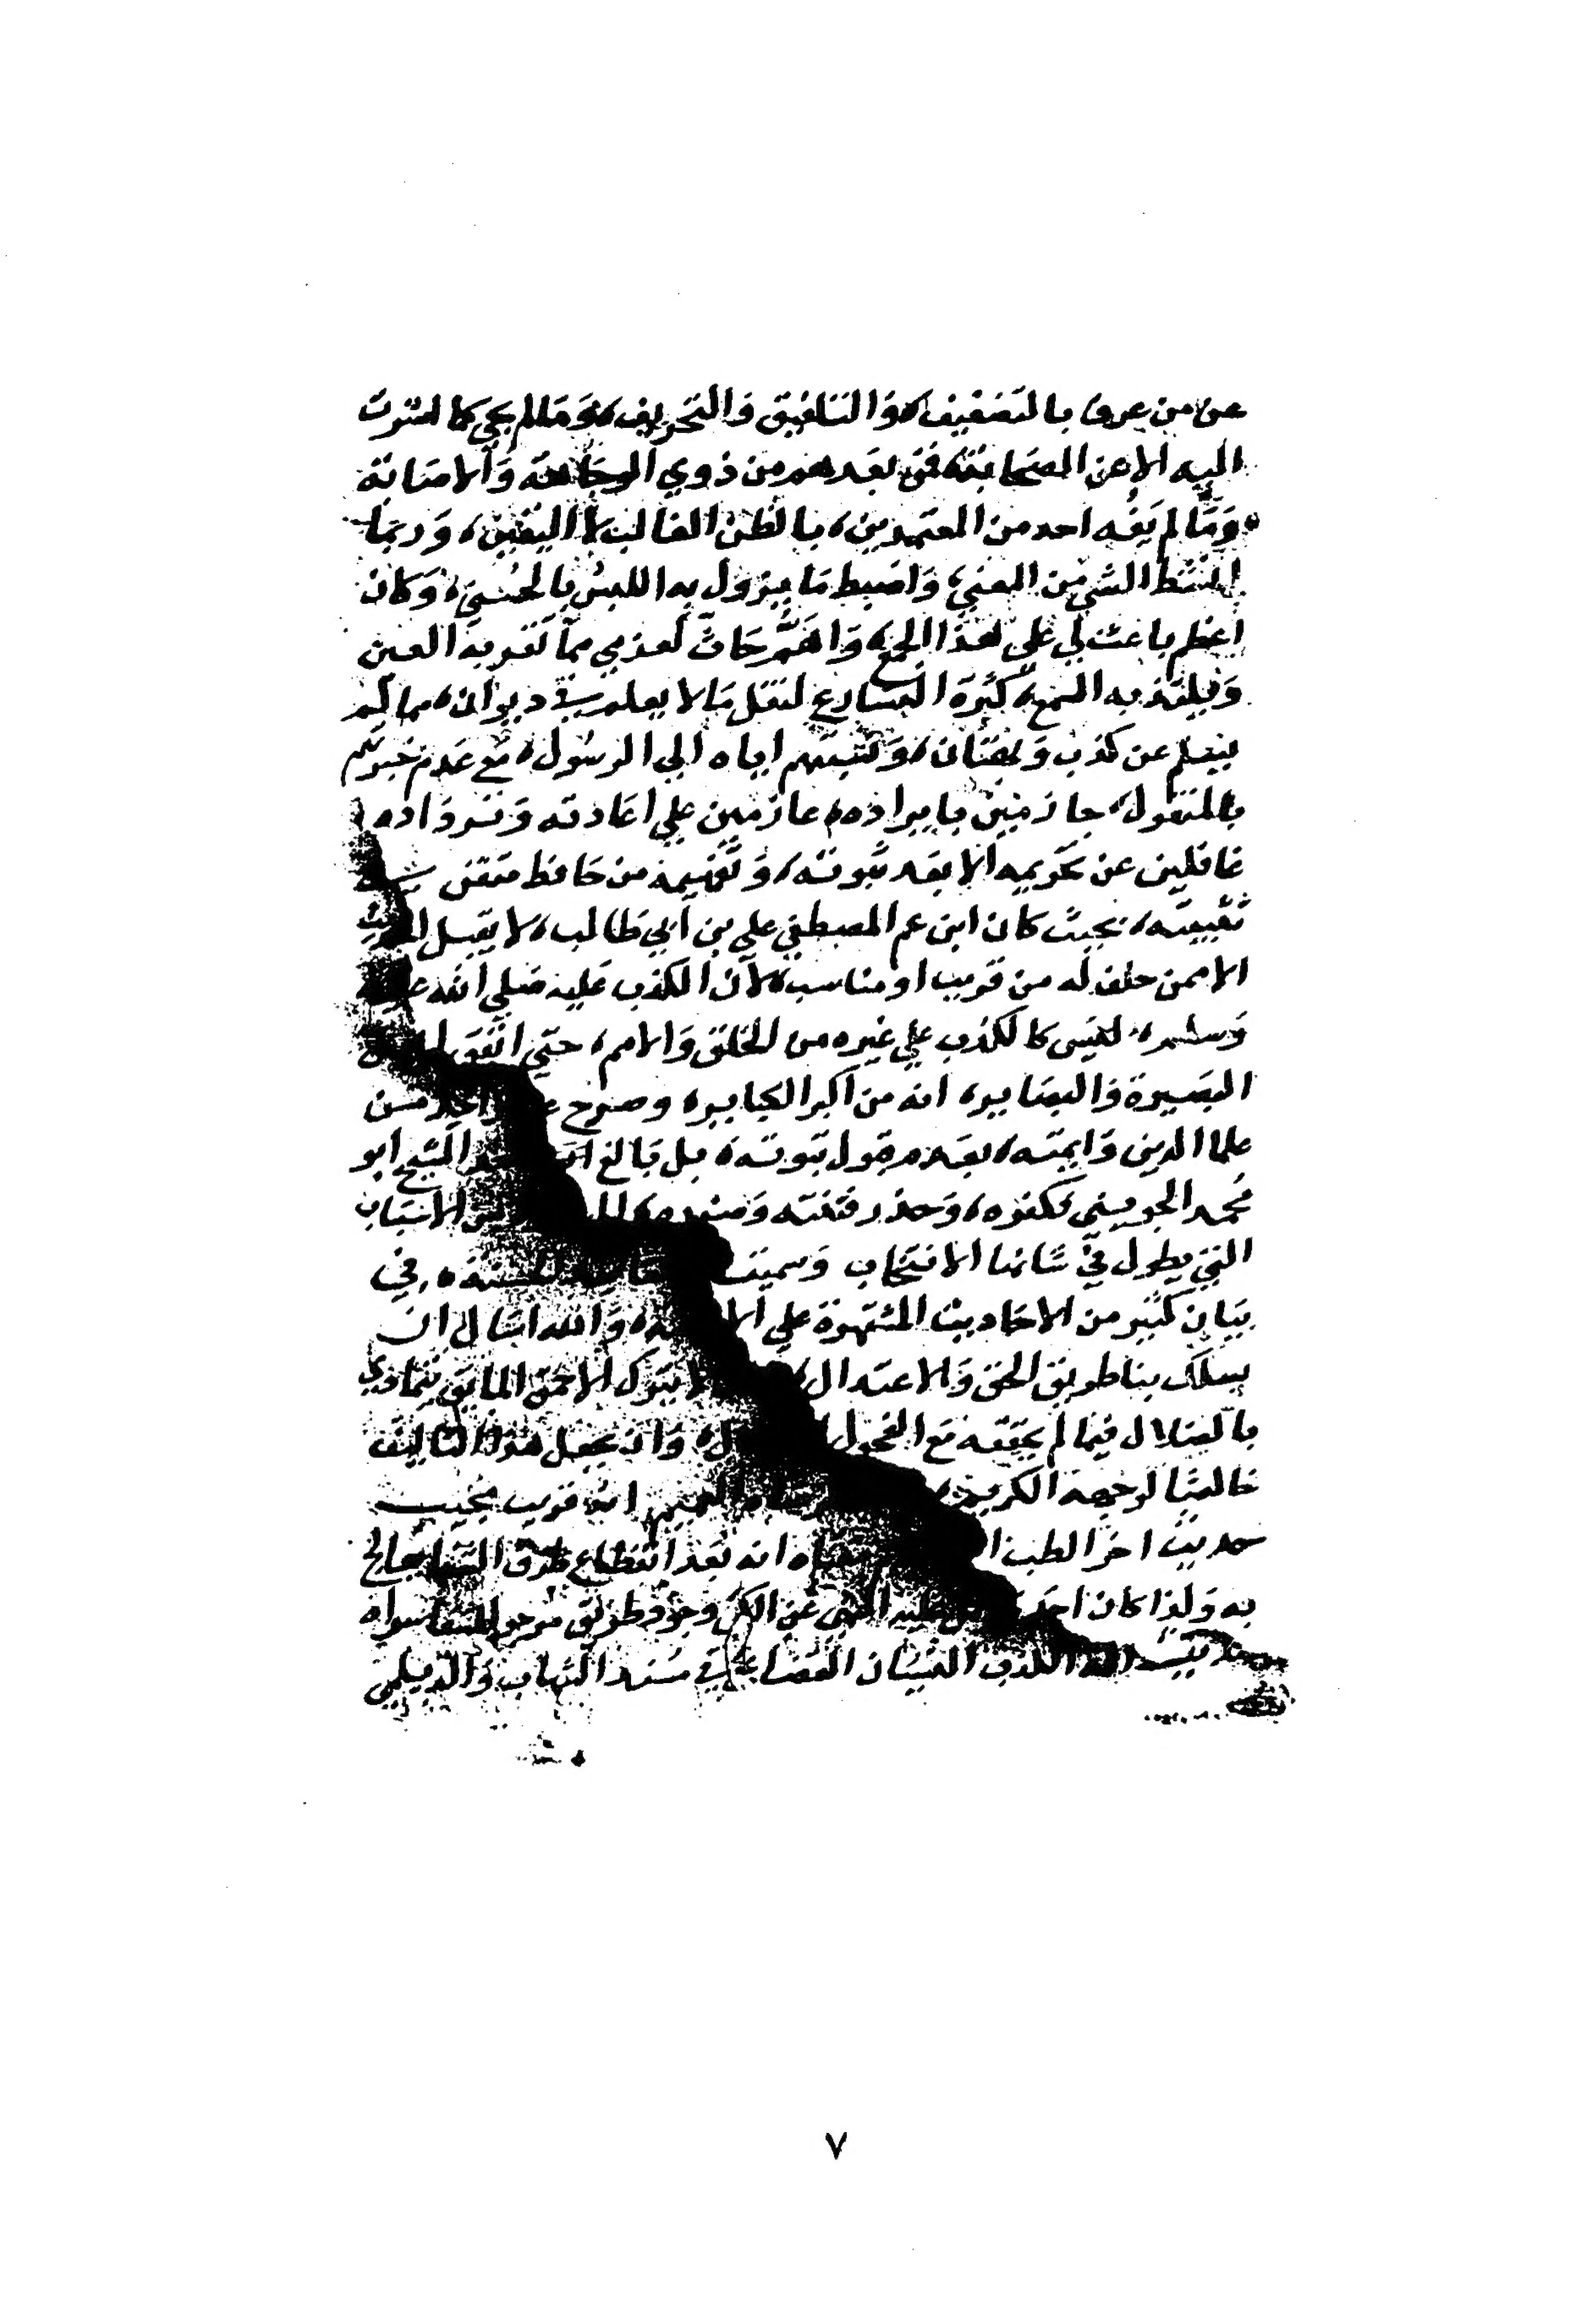 عن من عرف بالتضعيف، والتلفيق والتحريف، وما لم يجي كما اشرت
اليه الا عن الصحابة، فمن بعدهم من ذوي الوجاهة والاصابة
وما لم يفه احد من المعتمدين، بالظن الغالب لا اليقين، وربما
انشط الشي من المعني، واضبط ما يزول به اللبس بالحسني، وكان
اعظم باعث لي علي هذا الجمع، واهم حاث لعزمي مما تقر به العين
ويلتذ به السمع، كثرة التسارع لنقل ما لا يعلم في ديوان، مما لم
ينعلم عن كذب وبهتان، ونسبتهم اياه الي الرسول، مع عدم خبرتهم
بالمنقول، جازمين بايراده، عازمين علي اعادته وترداده
غافلين عن تحريمه الا بعد ثبوته، وتفهيمه من حافظ متقن
تثبيته، بحيث كان ابن عم المصطفي علي بن أبي طالب، لا يقبل الحديث
الا ممن حلف له من قريب او مناسب، لان الكذب عليه صلي الله عليه
وسلم، ليس كالكذب علي غيره من الخلق والامم، حتي اتفق
البصيرة والبصاير، انه من اكبر الكباير، وصرح واحد من
علما الدين وايمته، بعدم قبول توبته، بل بالغ الشيخ ابو
محمد الجويني فكفره، وحذر فتنته وضرره، الاسباب
التي يطول في شانها الانتخاب وسميته الحسنة، في
بيان كثير من الاحاديث المشتهرة علي الالسنة، والله اسال ان
يسلك بنا طريق الحق والاعتدال، لا يترك الاحمق المايق يتمادي
بالضلال فيما لم يحققه مع الفحول وان يجعل هذا التاليف
خالصا لوجهه الكريم، انه قريب مجيب
حديث اخر الطب معناه انه بعد انقطاع طرق الشفا يعالج
به ولذا كان احد عليه النهي عن الكي وجود طريق مرجو للشفا سواه
الكذب النسيان القضاعي في مسند الشهاب والديلمي
٧